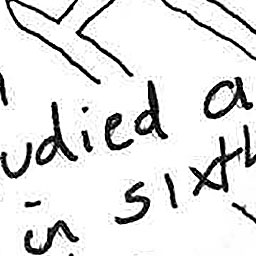 udied a
in sixth